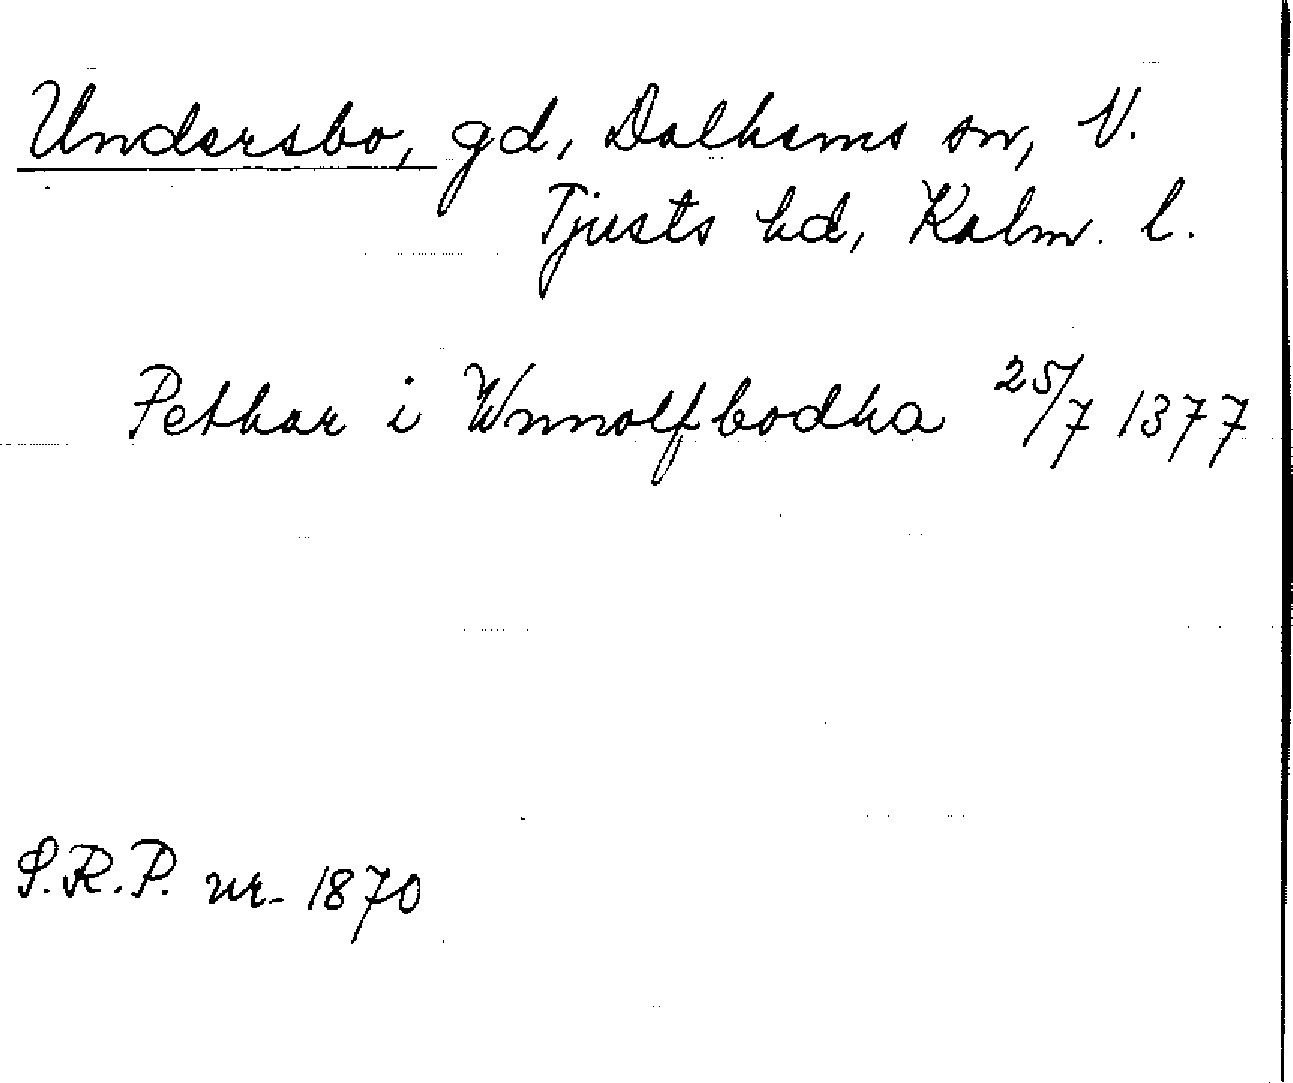 Undersbo, gd, Dalhems sn, V.
Tjusts hd, Kalm. l.
Pethar i Wnnolfbodha 25/7 1377
S.R.P. nr. 1870